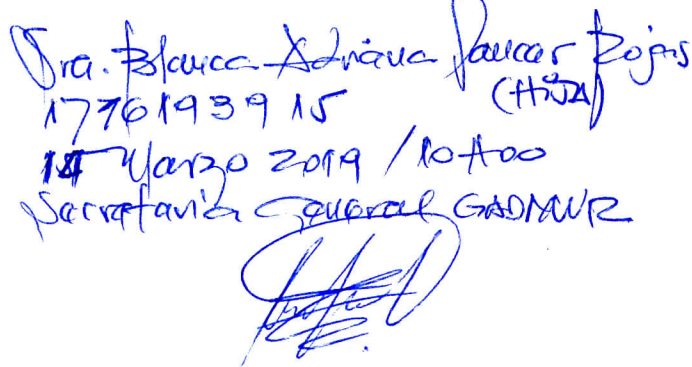 Sra. Blanca Adriana Paucar Rojas
1776193915 (HIJA)
Marzo 2019 / 10H00
Secretaria General GADMUR